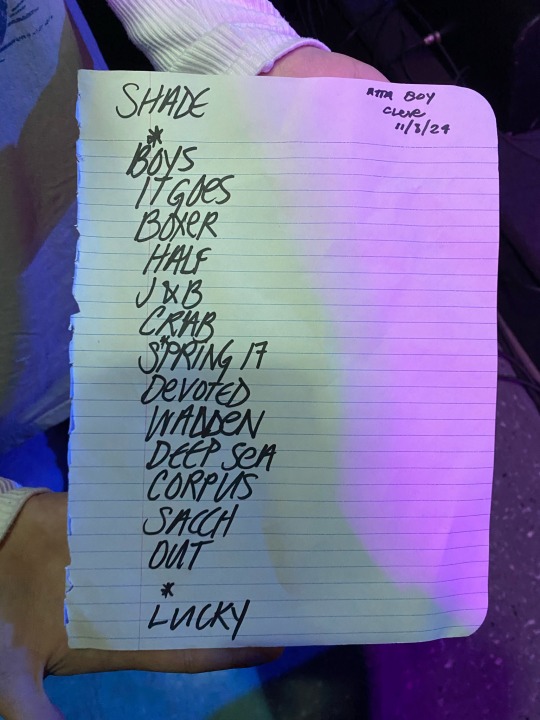 ATTA BOY
CLEVE
11/3/24
SHADE
*
BOYS
IT GOES
BOXER
HALF
J & B
CRAB
*
SPRING 17
DEVOTED
WALDEN
DEEP SEA
CORPUS
SACCH
OUT
*
LUCKY